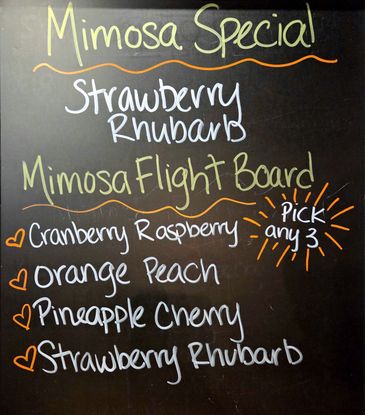 Mimosa Special
Strawberry
Rhubarb
Mimosa Flight Board
Pick
any 3
Cranberry Raspberry
Orange Peach
Pineapple Cherry
Strawberry Rhubarb